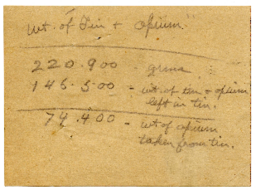 Wt. of Tin + Opium.
220.900 grms
146.500 - wt. of tin + opium
left in tin.
74.400 - wt of opium
taken from tin.